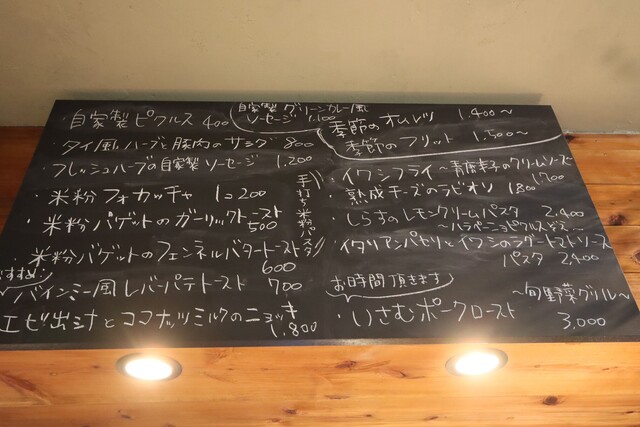 ・自家製ピクルス 400
自家製グリーンカレー風
ソーセージ 1.100
・タイ風ハーブと豚肉のサラダ 800
・フレッシュハーブの自家製ソーセージ 1.200
・米粉フォカッチャ 1コ200
・米粉バゲットのガーリックトースト
500
・米粉バゲットのフェンネルバタートースト
600
おすすめ!
バインミー風レバーパテトースト 700
エビ出汁とココナッツミルクのニョッキ
1.800
手打ち米粉パスタ
季節のオムレツ 1.400～
季節のフリット 1.500～
・イワシフライ～青唐辛子のクリームソース～
1.700
・熟成チーズのラビオリ 1.800
・しらすのレモンクリームパスタ 2.400
～ハラペーニョピクルス
・イタリアンパセリとイワシのラグートマトソース
パスタ 2.400
お時間頂きます
・いさむポークロースト ～旬野菜グリル～
3.000